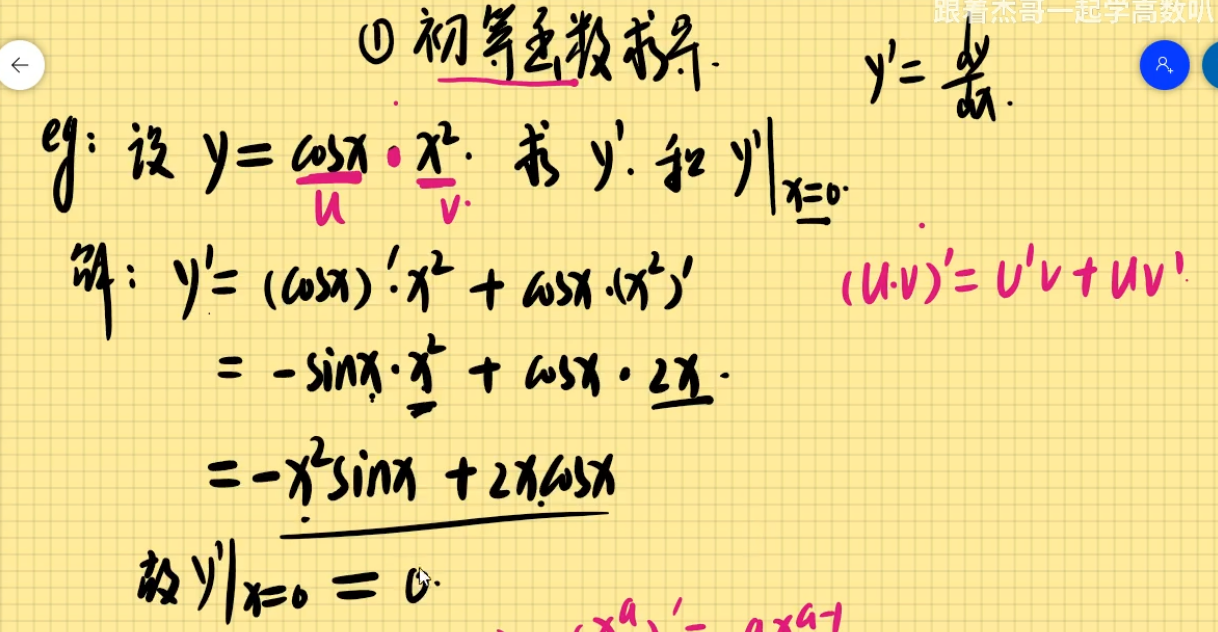 跟着杰哥一起学高数叭
① 初等函数求导.
y' = dy/dx.
eg: 设 y = cosx · x². 求 y'. 和 y'|x=0.
u v.
解: y' = (cosx)'·x² + cosx·(x²)'
(u·v)' = u'v + uv'
= -sinx·x² + cosx·2x.
= -x²sinx + 2xcosx
故 y'|x=0 = 0.
(xᵃ)' = axᵃ⁻¹